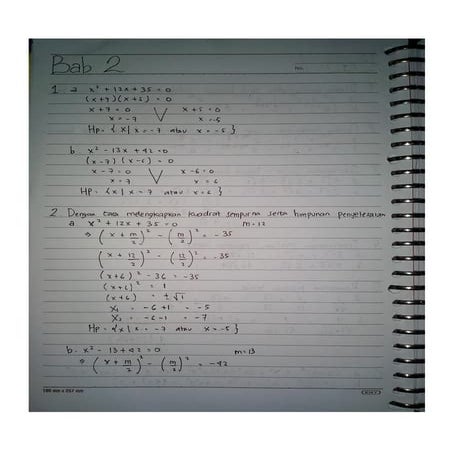 Bab 2
no.
1. a. x² + 12x + 35 = 0
(x+7)(x+5) = 0
x+7 = 0 V x+5 = 0
x = -7 x = -5
Hp = { x | x = -7 atau x = -5 }
b. x² - 13x + 42 = 0
(x-7)(x-6) = 0
x-7 = 0 V x-6 = 0
x = 7 x = 6
Hp = { x | x = 7 atau x = 6 }
2. Dengan cara melengkapkan kuadrat sempurna serta himpunan penyelesaian
a x² + 12x + 35 = 0 m=12
⇒ (x + m/2)² - (m/2)² = -35
(x + 12/2)² - (12/2)² = -35
(x+6)² - 36 = -35
(x+6)² = 1
(x+6) = ±√1
X₁ = -6+1 = -5
X₂ = -6-1 = -7
Hp = { x | x = -7 atau x = -5 }
b. x² - 13 + 42 = 0 m=13
⇒ (x + m/2)² - (m/2)² = -42
KIKY